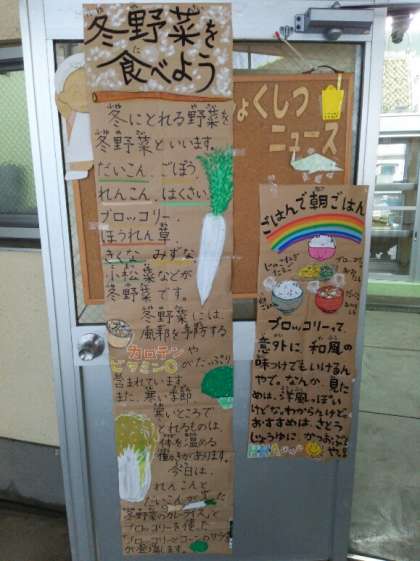 冬野菜を
食べよう
冬にとれる野菜を
冬野菜といいます。
だいこん、ごぼう、
れんこん、はくさい、
ブロッコリー、
ほうれん草、
きくな、みずな、
小松菜などが
冬野菜です。
冬野菜には
風邪を予防する
カロテンや
ビタミンCがたっぷり
含まれています。
また、寒い季節
寒いところで
とれるものは、
体を温める
働きがあります。
今日は、
れんこんと
だいこんが入った
冬野菜のカレーライスと
ブロッコリーを使った
ブロッコリーとコーンのサラダ
が登場します。
ょくしつ
ニュース
ごはんで朝ごはん
ブロッコリーって、
意外に和風の
味つけでもいけるん
やで。なんか、見た
めは、洋風っぽい
けどな。わからんけど。
おすすめは、さとう
しょうゆに、かつおぶし
やで